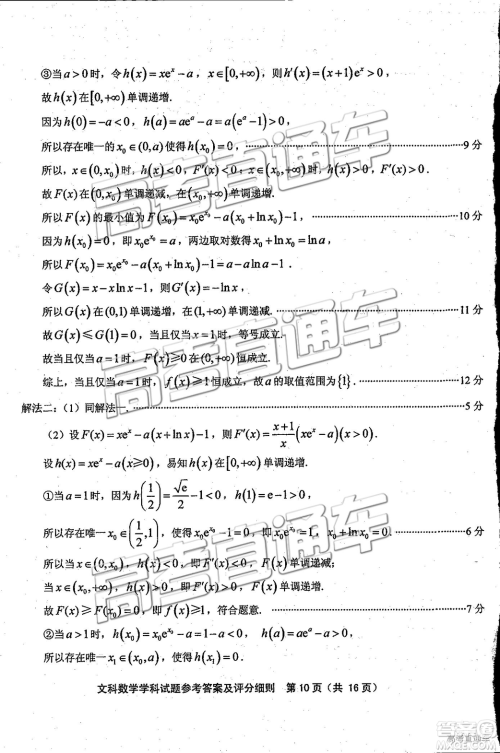 ③当 a>0 时，令 h(x)=xeˣ−a，x∈[0,+∞)，则 h′(x)=(x+1)eˣ>0，
故 h(x) 在 [0,+∞) 单调递增.
因为 h(0)=−a<0，h(a)=aeᵃ−a=a(eᵃ−1)>0，
所以存在唯一的 x₀∈(0,a) 使得 h(x₀)=0，……9 分
所以，x∈(0,x₀) 时，h(x)<0，F′(x)<0；x∈(x₀,+∞) 时，h(x)>0，F′(x)>0.
故 F(x) 在 (0,x₀) 单调递减，在 (x₀,+∞) 单调递增.
所以 F(x) 的最小值为 F(x₀)=x₀e^{x₀}−a(x₀+ln x₀)−1，……10 分
因为 h(x₀)=0，即 x₀e^{x₀}=a，两边取对数得 x₀+ln x₀=ln a，
所以 F(x₀)=x₀e^{x₀}−a(x₀+ln x₀)−1=a−a ln a−1.
令 G(x)=x−x ln x−1，则 G′(x)=−ln x.
所以 G(x) 在 (0,1) 单调递增，在 (1,+∞) 单调递减.……11 分
故 G(x)≤G(1)=0，当且仅当 x=1 时，等号成立.
故当且仅当 a=1 时，F(x)≥0 在 (0,+∞) 恒成立.
综上，当且仅当 a=1 时，f(x)≥1 恒成立，故 a 的取值范围为 {1}.……12 分
解法二：（1）同解法一.……5 分
（2）设 F(x)=xeˣ−a(x+ln x)−1，则 F′(x)=\frac{x+1}{x}(xeˣ−a)(x>0).
设 h(x)=xeˣ−a(x≥0)，易知 h(x) 在 [0,+∞) 单调递增.
①当 a=1 时，因为 h(\frac{1}{2})=\frac{√e}{2}−1<0，h(1)=e−1>0，
所以存在唯一 x₀∈(\frac{1}{2},1)，使得 x₀e^{x₀}−1=0，即 x₀e^{x₀}=1，x₀+ln x₀=0.……6 分
所以当 x∈(0,x₀) 时，h(x)<0，即 F′(x)<0，F(x) 单调递减；
当 x∈(x₀,+∞) 时，h(x)>0，即 F′(x)>0，F(x) 单调递增.
故 F(x)≥F(x₀)=0，即 f(x)≥1，符合题意.……7 分
②当 a>1 时，h(x₀)=x₀e^{x₀}−a<0，h(a)=aeᵃ−a>0，
所以存在唯一
文科数学学科试题参考答案及评分细则 第 10 页（共 16 页）
高考直通车
高考直通车
高考直通车